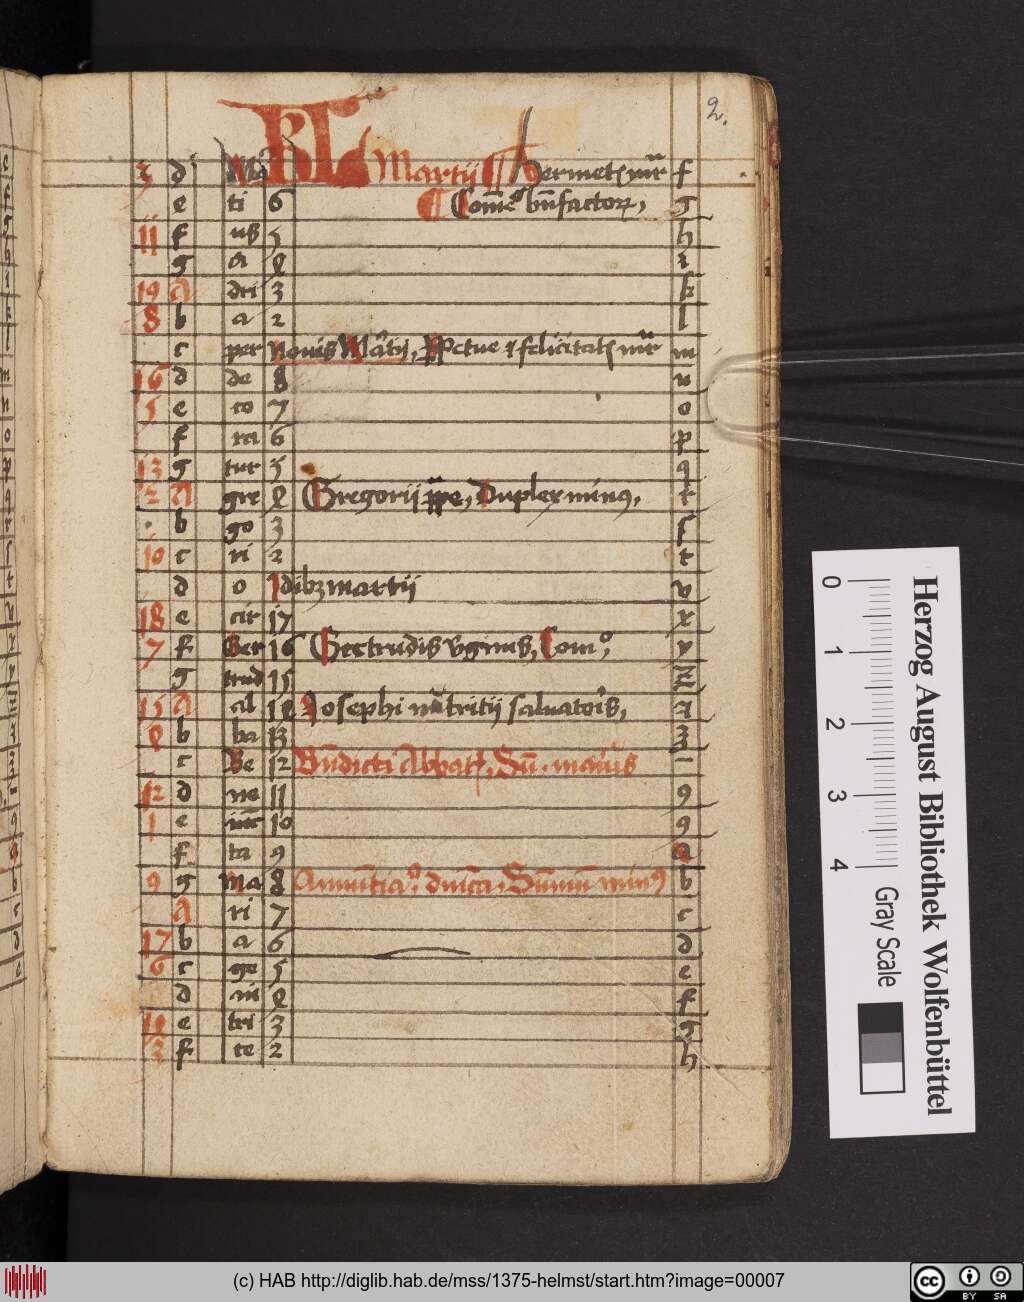 2.
Kl Martii ¶ Hermetis mr̄
3 d Ma f
e ti 6 ¶ Com̄e bn̄factorꝝ, g
11 f us 5 h
g a 4 i
19 A dri 3 k
8 b a 2 l
c per Nonis Ma᷑tij, ꝑpetue ⁊ felicitatis mr̄ m
16 d de 8 n
5 e co 7 o
f ra 6 p
13 g tur 5 q
2 A gre 4 Gregorii pp̄e, Duplex minus, r
b go 3 ſ
10 c ri 2 t
d o Idibꝫ martii v
18 e cir 17 x
7 f Ger 16 Gertrudis v̄ginis, Com̊; y
g trud 15 z
15 A al 14 Iosephi nūtritij saluatoris, ⁊
4 b ba 13 3
c Be 12 Bn̄dicti Abbatis, Sū. maiꝰis
12 d ne 11 9
1 e iūc 10 9
f ta 9 a
9 g Ma 8 Annūtiaᵒ, dn̄ica. Sūmū minꝰ b
A ri 7 c
17 b a 6 d
6 c ge 5 e
d ni 4 f
14 e tri 3 g
3 f te 2 h
0
1
2
3
4
Herzog August Bibliothek Wolfenbüttel
Gray Scale
(c) HAB http://diglib.hab.de/mss/1375-helmst/start.htm?image=00007
cc BY SA